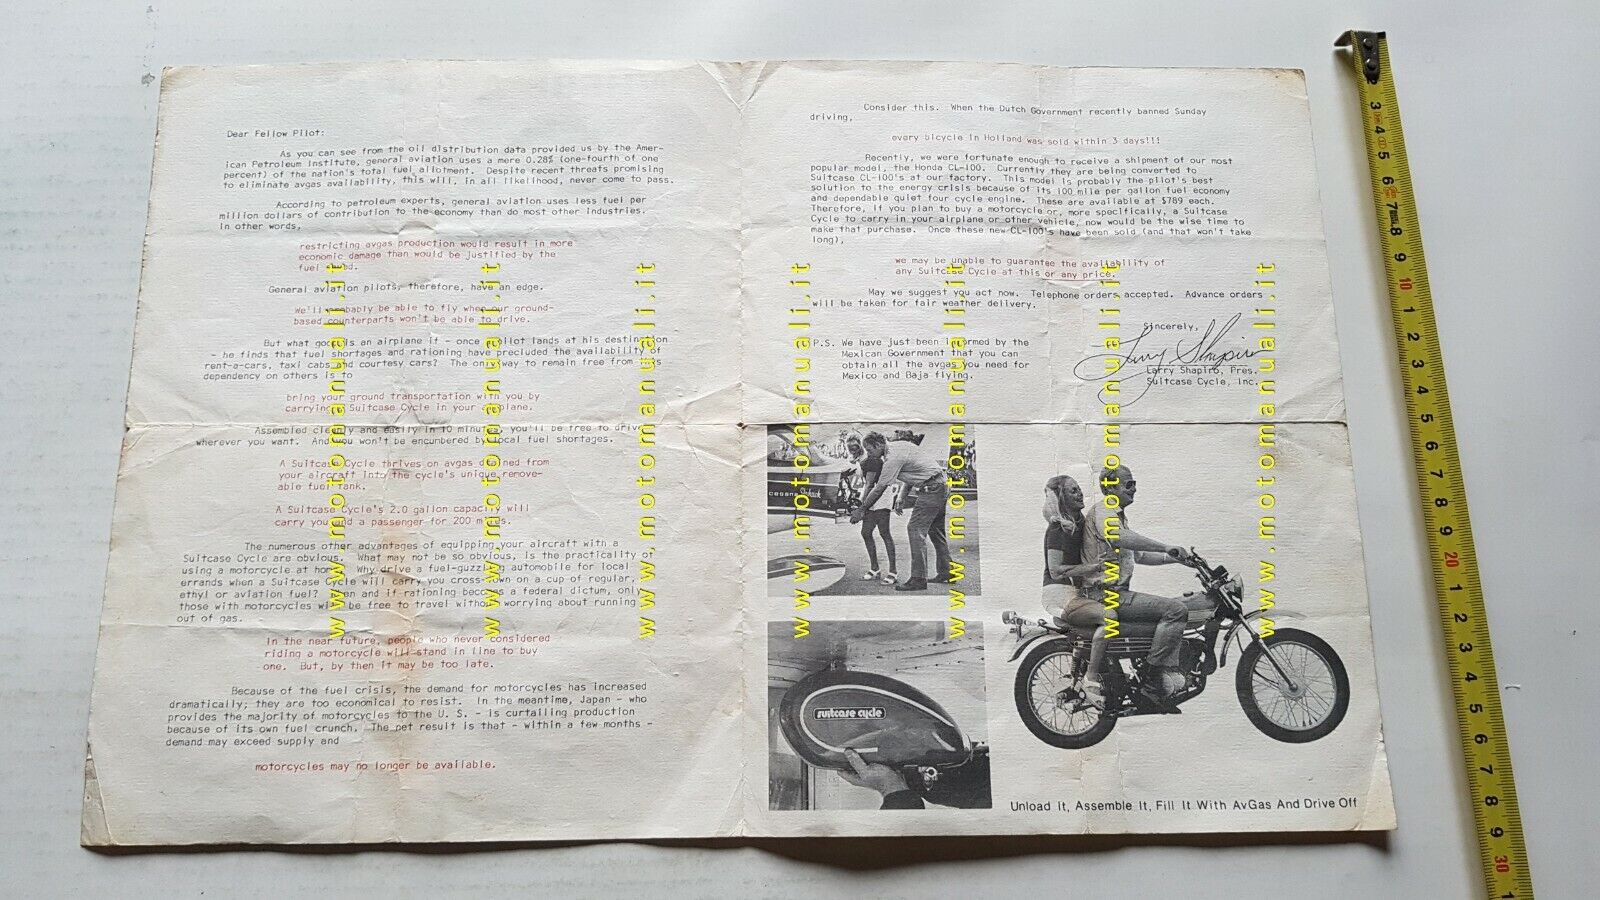 Dear Fellow Pilot:
As you can see from the oil distribution data provided us by the Amer-
ican Petroleum Institute, general aviation uses a mere 0.28% (one-fourth of one
percent) of the nation's total fuel allotment. Despite recent threats promising
to eliminate avgas availability, this will, in all likelihood, never come to pass.
According to petroleum experts, general aviation uses less fuel per
million dollars of contribution to the economy than do most other industries.
In other words,
restricting avgas production would result in more
economic damage than would be justified by the
fuel
General aviation pilots, therefore, have an edge.
We'll probably be able to fly when our ground-
based counterparts won't be able to drive.
But what good is an airplane if - once a pilot lands at his destination
- he finds that fuel shortages and rationing have precluded the availability of
rent-a-cars, taxi cabs and courtesy cars? The only way to remain free from this
dependency on others is to
bring your ground transportation with you by
carrying a Suitcase Cycle in your airplane.
Assembled cleanly and easily in 10 minutes, you'll be free to drive
wherever you want. And you won't be encumbered by local fuel shortages.
A Suitcase Cycle thrives on avgas drained from
your aircraft into the cycle's unique remove-
able fuel tank.
A Suitcase Cycle's 2.0 gallon capacity will
carry you and a passenger for 200 miles.
The numerous other advantages of equipping your aircraft with a
Suitcase Cycle are obvious. What may not be so obvious, is the practicality of
using a motorcycle at home. Why drive a fuel-guzzling automobile for local
errands when a Suitcase Cycle will carry you cross-town on a cup of regular,
ethyl or aviation fuel? Even and if rationing becomes a federal dictum, only
those with motorcycles will be free to travel without worrying about running
out of gas.
In the near future, people who never considered
riding a motorcycle will stand in line to buy
one. But, by then it may be too late.
Because of the fuel crisis, the demand for motorcycles has increased
dramatically; they are too economical to resist. In the meantime, Japan - who
provides the majority of motorcycles to the U. S. - is curtailing production
because of its own fuel crunch. The net result is that - within a few months -
demand may exceed supply and
motorcycles may no longer be available.
Consider this. When the Dutch Government recently banned Sunday
driving,
every bicycle in Holland was sold within 3 days!!!
Recently, we were fortunate enough to receive a shipment of our most
popular model, the Honda CL-100. Currently they are being converted to
Suitcase CL-100's at our factory. This model is probably the pilot's best
solution to the energy crisis because of its 100 mile per gallon fuel economy
and dependable quiet four cycle engine. These are available at $789 each.
Therefore, if you plan to buy a motorcycle or, more specifically, a Suitcase
Cycle to carry in your airplane or other vehicle, now would be the wise time to
make that purchase. Once these new CL-100's have been sold (and that won't take
long),
we may be unable to guarantee the availability of
any Suitcase Cycle at this or any price.
May we suggest you act now. Telephone orders accepted. Advance orders
will be taken for fair weather delivery.
Sincerely,
Larry Shapiro
Larry Shapiro, Pres.
Suitcase Cycle, Inc.
P.S. We have just been informed by the
Mexican Government that you can
obtain all the avgas you need for
Mexico and Baja flying.
cessna Skyhawk
suitcase cycle
Unload It, Assemble It, Fill It With AvGas And Drive Off
www.motomanuali.it
www.motomanuali.it
www.motomanuali.it
www.motomanuali.it
www.motomanuali.it
www.motomanuali.it
www.motomanuali.it
2 3 4 5 6 7 8 9 10 1 2 3 4 5 6 7 8 9 20 1 2 3 4 5 6 7 8 9 30